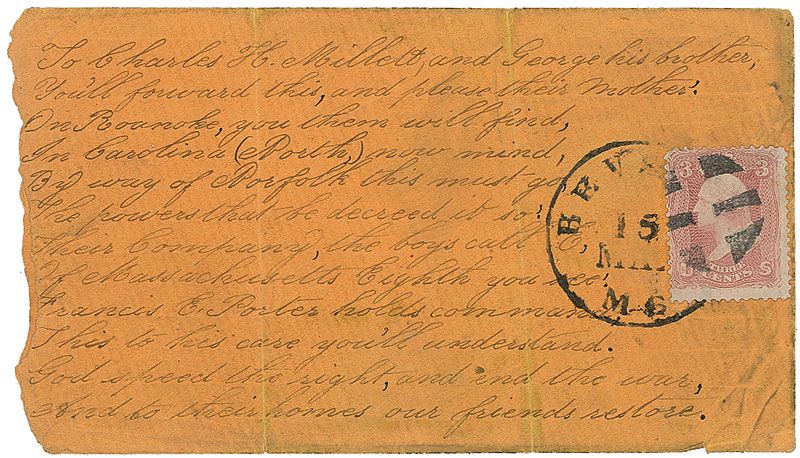 To Charles H. Millett, and George his brother,
You'll forward this, and please their Mother.
On Roanoke, you them will find,
In Carolina (North,) now mind,
By way of Norfolk this must go
The powers that be decreed it so!
Their Company, the boys call E,
Of Massachusetts Eighth you see,
Francis E. Porter holds command
This to his care you'll understand.
God speed the right, and end the war,
And to their homes our friends restore.
BEVE
15
MA
MS
3 3
THREE
CENTS